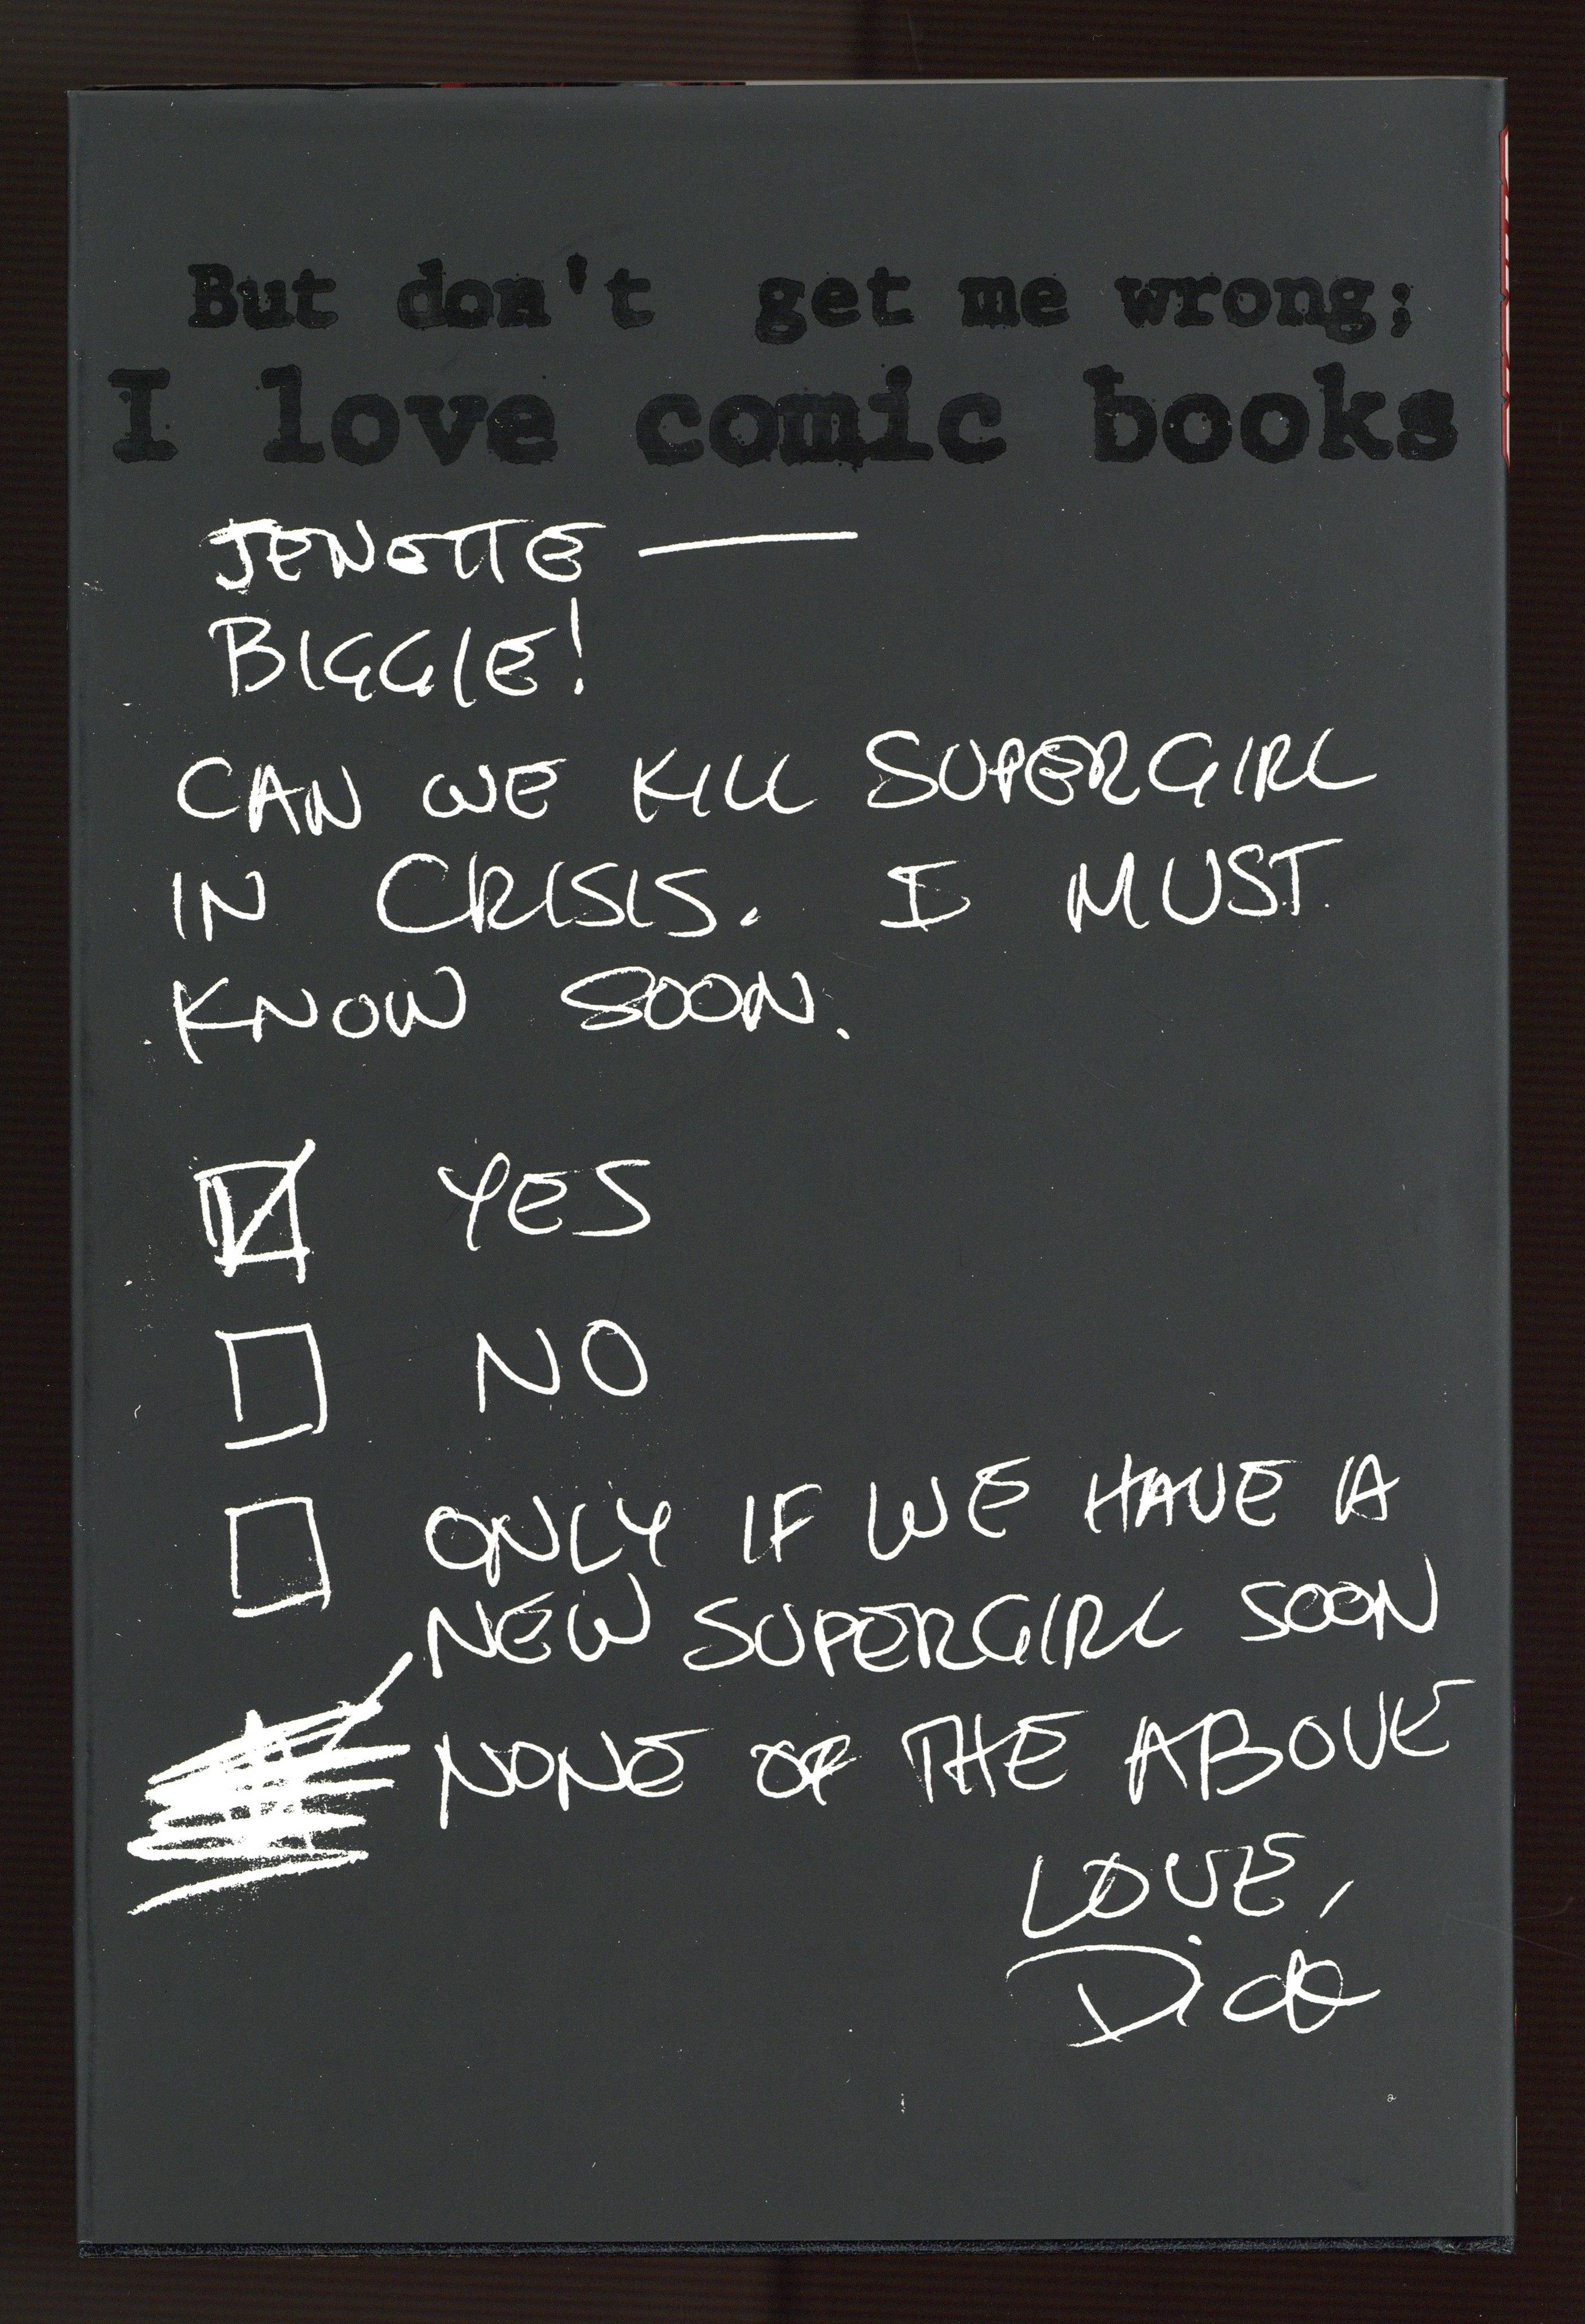 But don't get me wrong;
I love comic books
JENETTE —
BIGGIE!
CAN WE KILL SUPERGIRL
IN CRISIS. I MUST
KNOW SOON.
☑ YES
☐ NO
☐ ONLY IF WE HAVE A
NEW SUPERGIRL SOON
NONE OF THE ABOVE
LOVE,
Dick